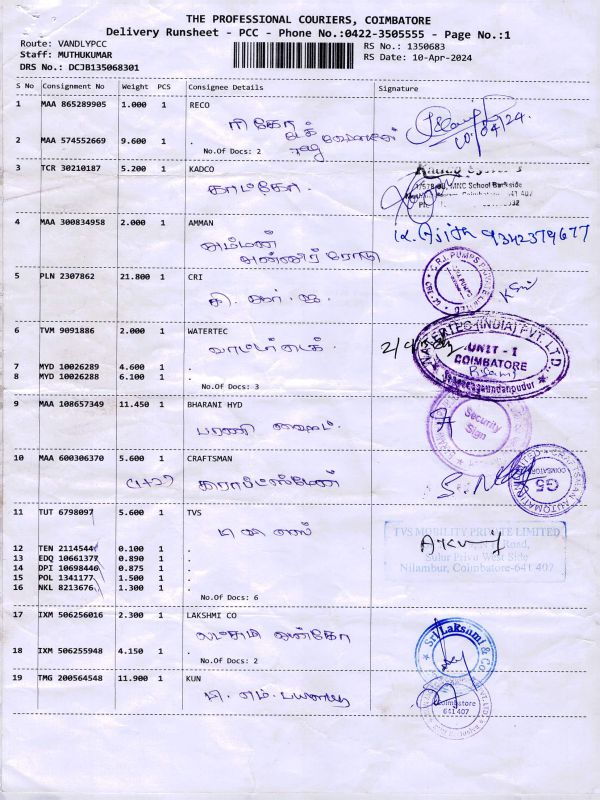 THE PROFESSIONAL COURIERS, COIMBATORE
Delivery Runsheet - PCC - Phone No.:0422-3505555 - Page No.:1
Route: VANDLYPCC
RS No.: 1350683
Staff: MUTHUKUMAR
RS Date: 10-Apr-2024
DRS No.: DCJB135068301
S No Consignment No Weight PCS Consignee Details Signature
1 MAA 865289905 1.000 1 RECO
ரிகோ
10/04/24
2 MAA 574552669 9.600 1 .
No.Of Docs: 2
3 TCR 30210187 5.200 1 KADCO
காட்கோ.
MNC School Backside
Coimbatore - 641 407
4 MAA 300834958 2.000 1 AMMAN
K. Ajith 9342379677
அம்மன்
அன்னூர் ரோடு
5 PLN 2307862 21.800 1 CRI
சி. ஆர். ஐ.
6 TVM 9091886 2.000 1 WATERTEC
வாட்டர்டெக்
WATERTEC (INDIA) PVT. LTD.
UNIT - I
COIMBATORE
7 MYD 10026289 4.600 1 .
8 MYD 10026288 6.100 1 .
No.Of Docs: 3
9 MAA 108657349 11.450 1 BHARANI HYD
பரணி ஹைட்.
Security
Sign
10 MAA 600306370 5.600 1 CRAFTSMAN
COIMBATORE
G5
11 TUT 6798097 5.600 1 TVS
டி வி எஸ்
TVS MOBILITY PRIVATE LIMITED
Road,
Sulur Privu West Side
Nilambur, Coimbatore-641 407
12 TEN 2114544 0.100 1 .
13 EDQ 10661377 0.890 1 .
14 DPI 10698446 0.875 1 .
15 POL 1341177 1.500 1 .
16 NKL 8213676 1.300 1 .
No.Of Docs: 6
17 IXM 506256016 2.300 1 LAKSHMI CO
லட்சுமி அன்கோ
Sri Laksami & Co.
18 IXM 506255948 4.150 1 .
No.Of Docs: 2
19 TMG 200564548 11.900 1 KUN
Coimbatore
641 407